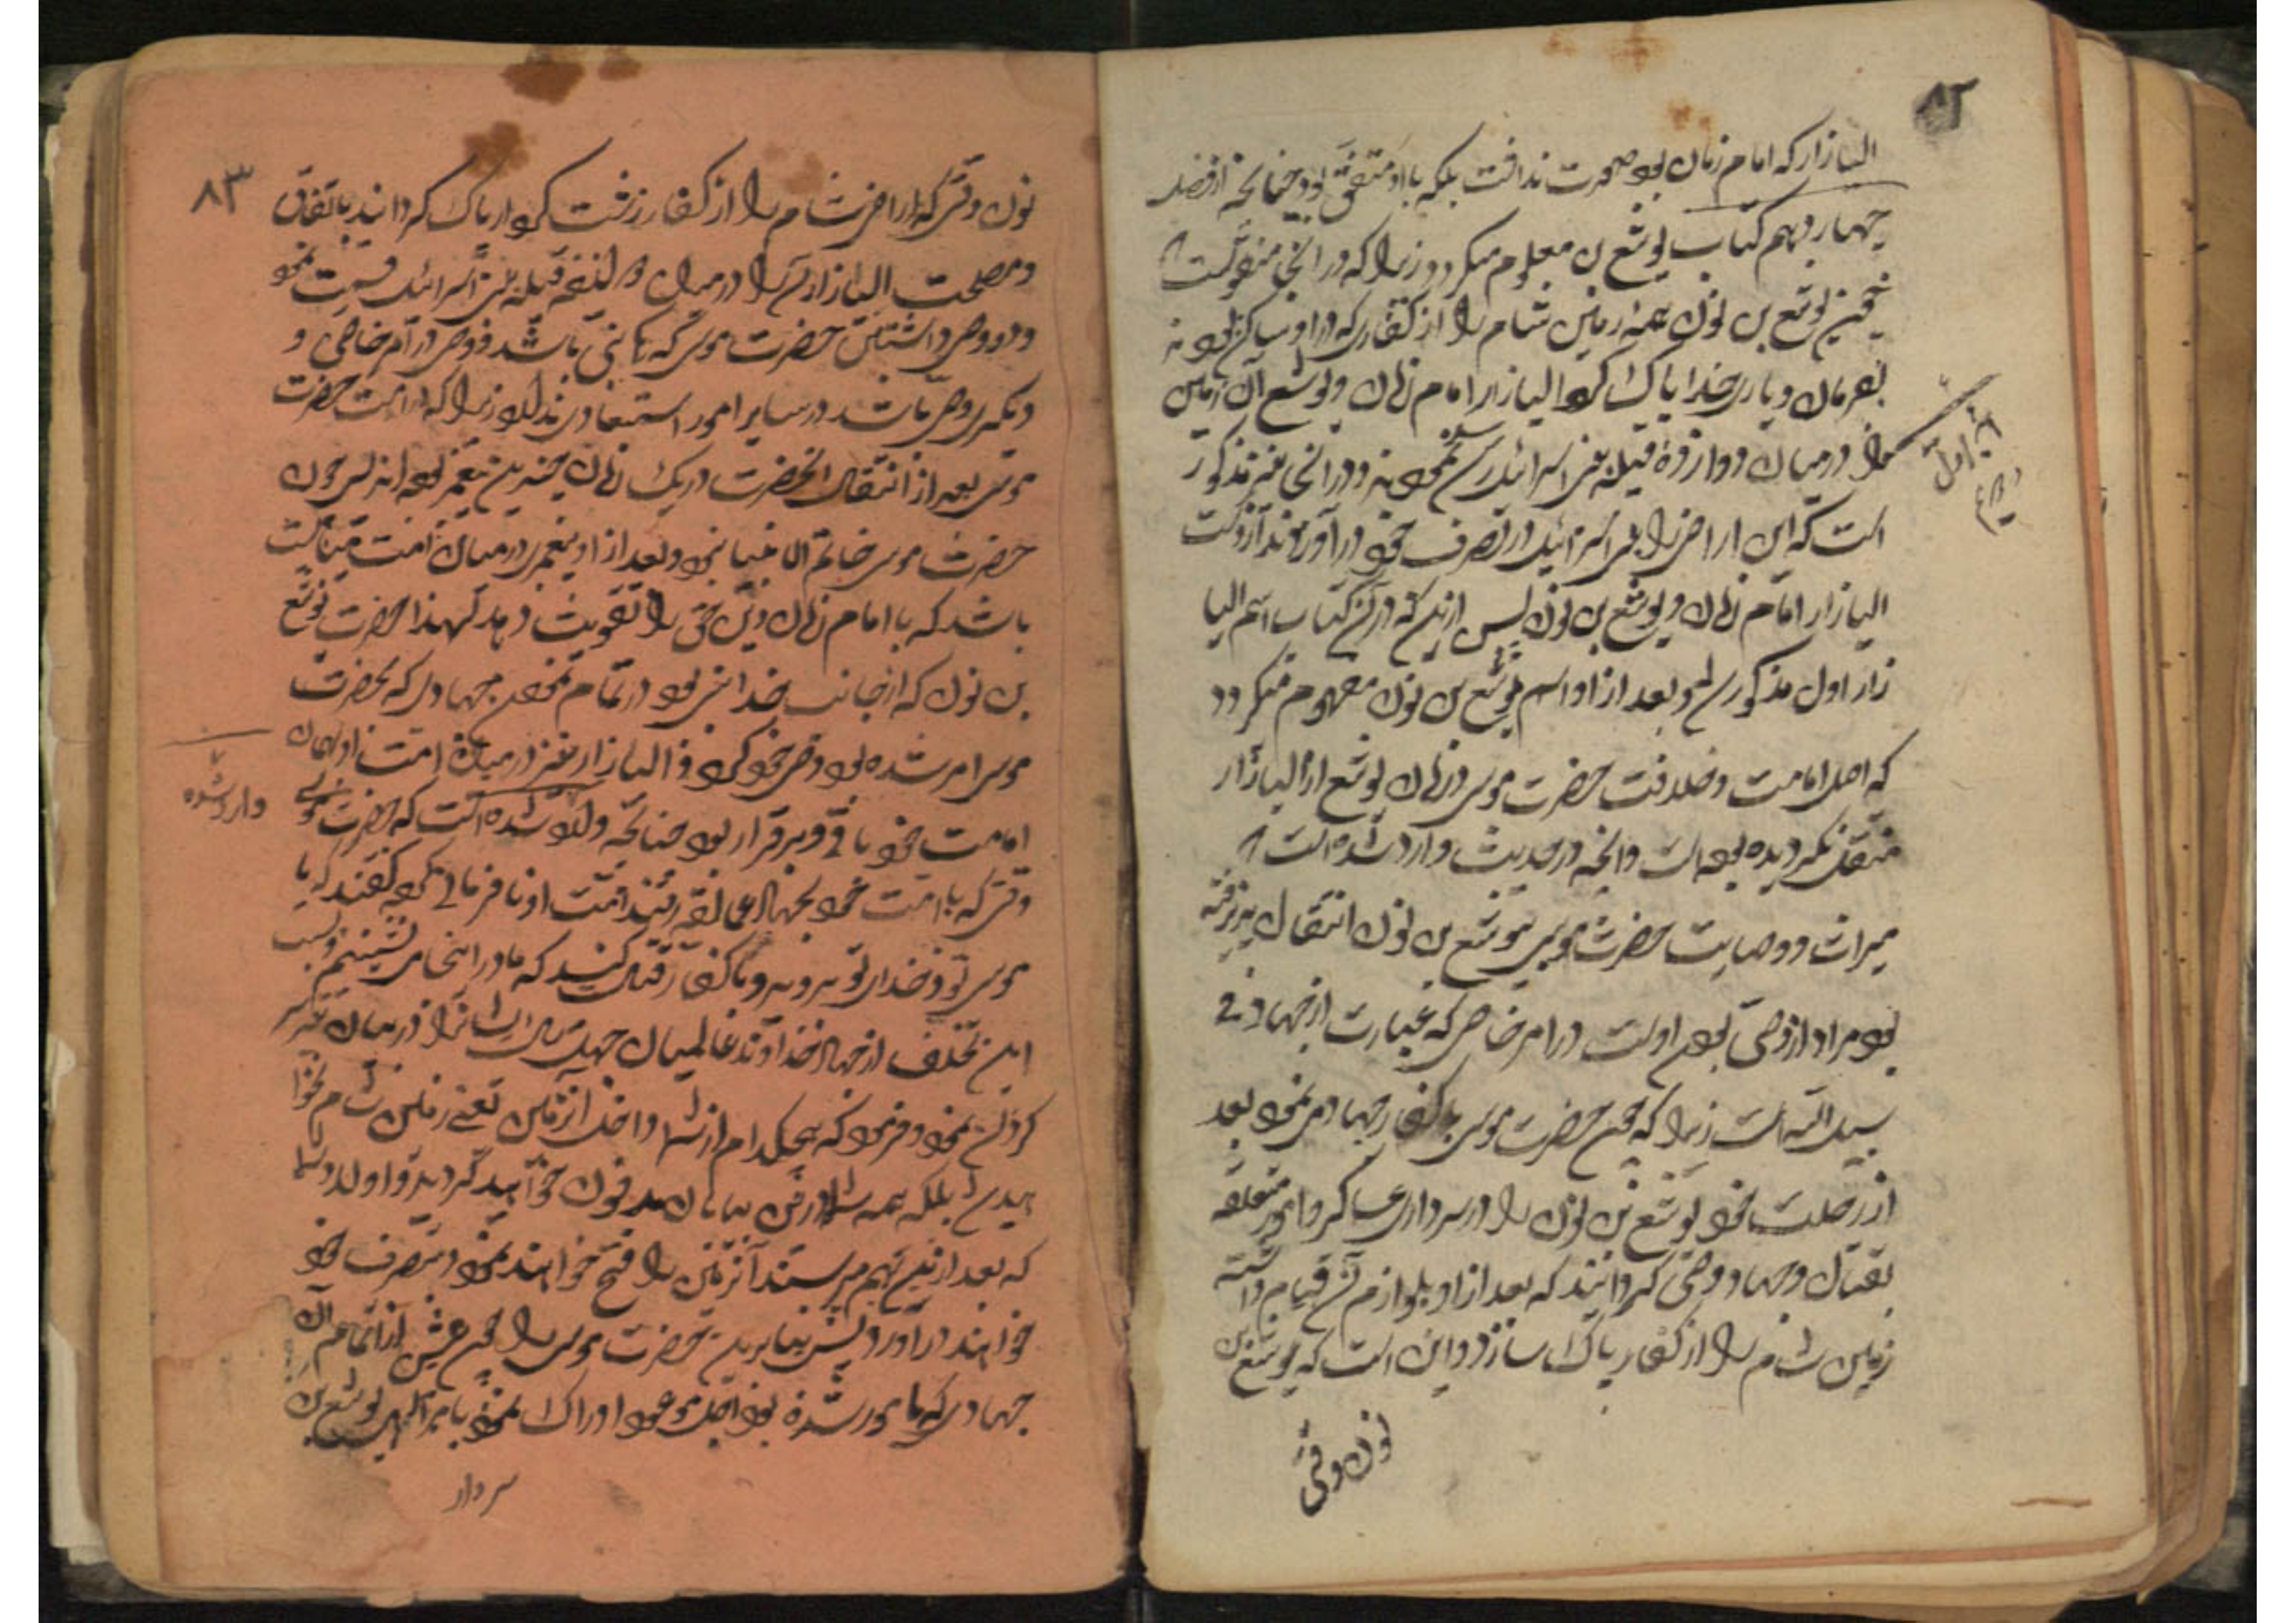 ۸۲
الیازار که امام زمان بود صحبت نداشت بلکه با او متفق بود چنانچه از فصل
چهاردهم کتاب یوشع بن معلوم میگردد زیرا که در آنجا منقولست که
چون یوشع بن نون همه زمین شام را از کفاری که در او ساکن بودند
بفرمان و یاری خدا پاک کرد الیازار امام زمان و یوشع آن زمین
را در میان دوازده قبیله بنی اسرائیل رسد نمودند و در آنجا نیز مذکور
است که این اراضی را بنی اسرائیل در تصرف خود درآوردند از دست
الیازار امام زمان و یوشع بن نون پس از اینکه در آن کتاب اسم الیا
زار اول مذکور شده و بعد از او اسم یوشع بن نون مفهوم میگردد
که اصل امامت و خلافت حضرت موسی در زمان یوشع از الیازار
منتقل نگردیده بوده است و آنچه در حدیث وارد شده است که
میراث و وصایت حضرت موسی بیوشع بن نون انتقال پذیرفته
بود مراد از وصی بودن اوست در امر خاص که عبارت از جهاد فی
سبیل الله است زیرا که چون حضرت موسی با کفار جهاد می نمود بعد
از رحلت خود یوشع بن نون را در سرداری عساکر و امور متعلقه
بقتال و جهاد وصی گردانید که بعد از او بلوازم آن قیام داشته
زمین شام را از کفار پاک سازد و این است که یوشع بن
نون وقتی
آیه اول
۸۳
نون وقتی که اراضی شام را از کفار زشت کردار پاک گردانید باتفاق
و مصلحت الیازار آن را در میان دوازده قبیله بنی اسرائیل قسمت نمود
و دو وصی داشتن حضرت موسی که یکی باشد وصی در امر خاصی و
دیگری وصی باشد در سایر امور استبعادی ندارد زیرا که در امت حضرت
موسی بعد از انتقال آنحضرت در یک زمان چندین پیغمبر بوده اند پس چون
حضرت موسی خاتم الانبیا نبود و بعد از او پیغمبر در میان امت میبایست
باشد که با امام زمان دین حق را تقویت دهد لهذا حضرت یوشع
بن نون که از جانب خدا نبی بود در تمام نمودن جهادی که بحضرت
موسی امر شده بود وصی خود کرد و الیازار نیز در میان امت او بهمان
امامت خود باقی و برقرار بود چنانچه وارد شده است که حضرت موسی
وقتی که با امت خود بجهاد عمالقه رفتند امت او نافرمانی کرده گفتند که یا
موسی تو و خدای تو بروید و با کفار قتال کنید که ما در اینجا می نشینیم و بسبب
این تخلف از جهاد خداوند عالمیان چهل سال ایشانرا در میان تیه سر
گردان نمود و فرمود که هیچکدام از شما داخل آن زمین یعنی زمین شام نخوا
هید شد بلکه همه شما در این بیابان مدفون خواهید گردید و اولاد شما
که بعد از این بهم میرسند آنزمین را فتح خواهند نمود و بتصرف خود
خواهند درآورد پس بنابراین حضرت موسی را چون پیش از اتمام آن
جهادی که مأمور شده بود اجل موعود ادراک نمود بامر الهی یوشع بن
سردار
وارد شده